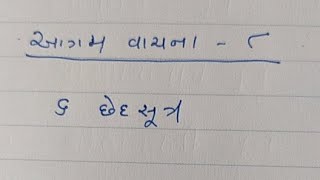 આગમ વાચના - ૮
૬ છેદસૂત્ર